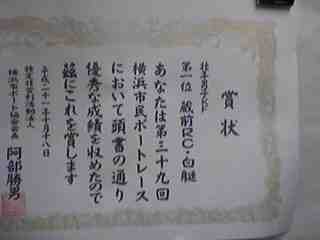 賞状
壮年男子ナックルフォア
第一位 蔵前RC・白髭
あなたは第三十九回
横浜市民ボートレース
において頭書の通り
優秀な成績を収めたので
茲にこれを賞します
平成二十一年十月十八日
特定非営利活動法人
横浜市ボート協会会長 阿部勝男